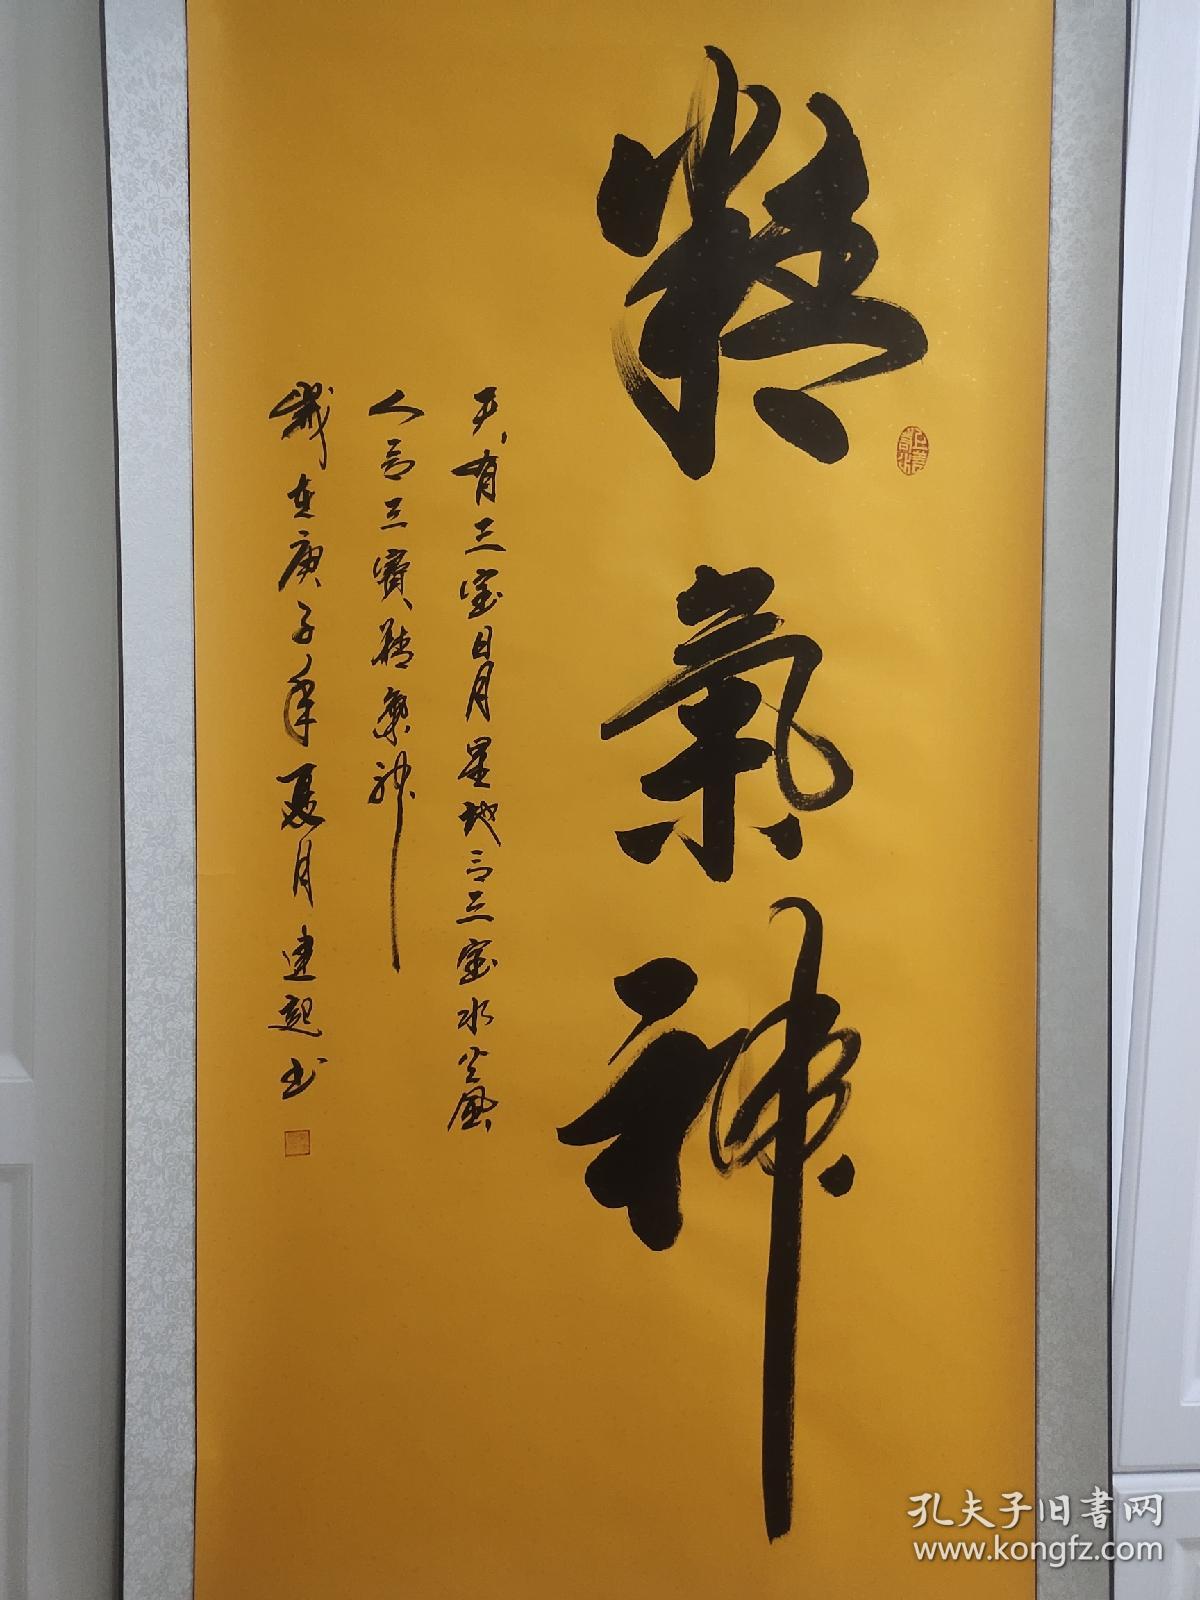 精氣神
天有三宝日月星地有三宝水火風
人有三寳精氣神
歲在庚子年夏月建起书
孔夫子旧書网
www.kongfz.com